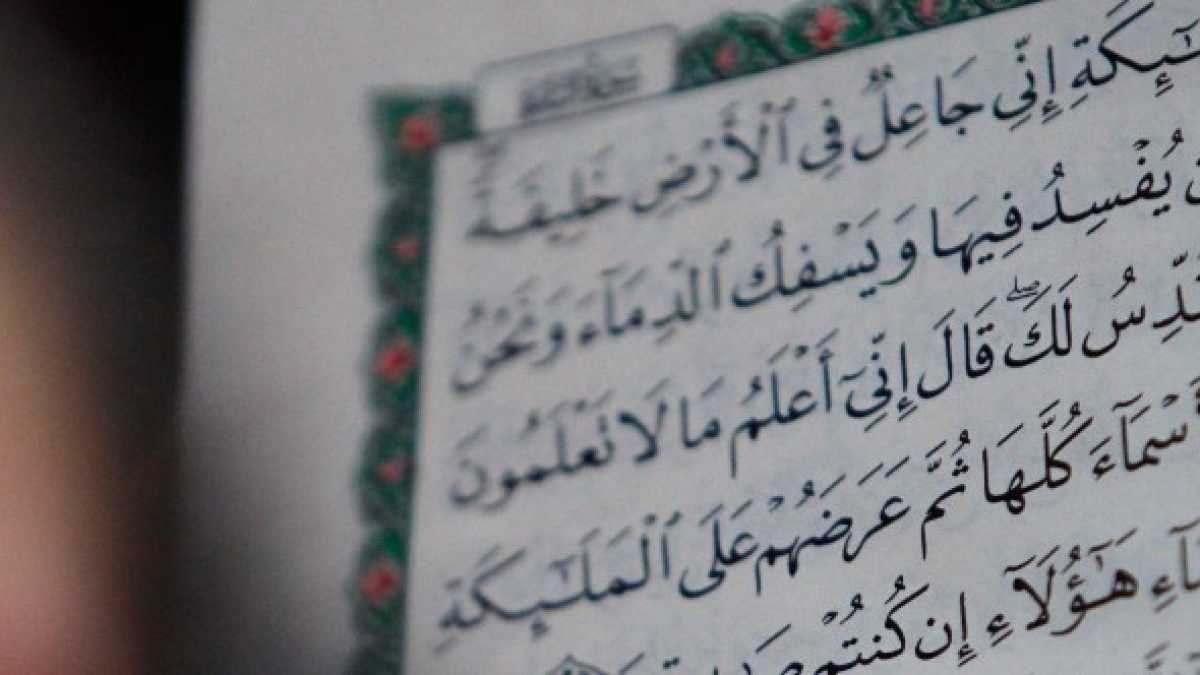 إِنِّي جَاعِلٌ فِي ٱلْأَرْضِ خَلِيفَةً
يُفْسِدُ فِيهَا وَيَسْفِكُ ٱلدِّمَآءَ وَنَحْنُ
لَكَۖ قَالَ إِنِّيٓ أَعْلَمُ مَا لَا تَعْلَمُونَ
كُلَّهَا ثُمَّ عَرَضَهُمْ عَلَى ٱلْمَلَٰٓئِكَةِ
هَٰٓؤُلَآءِ إِن كُنتُمْ